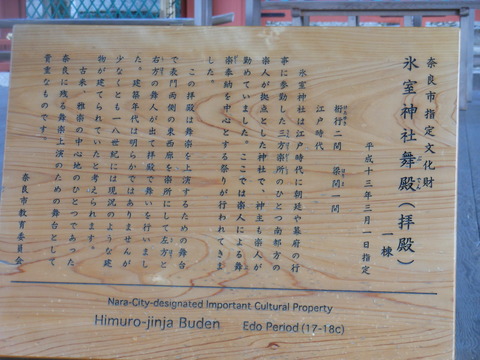 奈良市指定文化財
氷室神社舞殿（拝殿） 一棟
平成十三年三月一日指定
桁行二間 梁間一間
江戸時代
氷室神社は江戸時代に朝廷や幕府の行
事に参勤した三方楽所のひとつ南都方の
楽人が拠点とした神社で、神主も楽人が
勤めていました。ここでは楽人による舞
楽奉納を中心とする祭りが行われてきま
した。
この拝殿は舞楽を上演するための舞台
で表門両側の東西廊を楽所にして左方と
右方の舞人が出て拝殿で舞いを行いまし
た。建築年代は明らかではありませんが
少なくとも一八世紀には現況のような建
物が建てられていたと考えられます。
古来、雅楽の中心地のひとつであった
奈良に残る舞楽上演のための舞台として
貴重なものです。
奈良市教育委員会
Nara-City-designated Important Cultural Property
Himuro-jinja Buden Edo Period (17-18c)